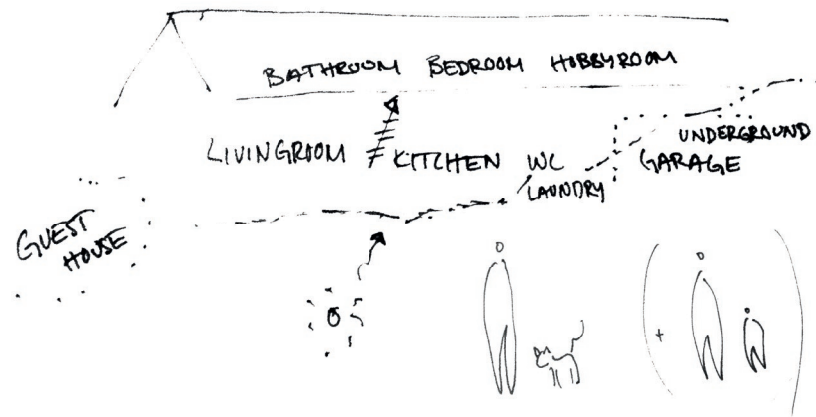 BATHROOM BEDROOM HOBBYROOM
LIVINGROOM KITCHEN WC
LAUNDRY
UNDERGROUND
GARAGE
GUEST
HOUSE
+